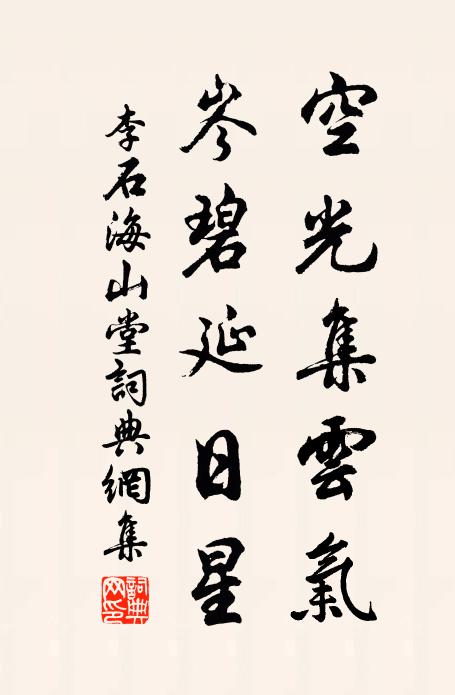 空光集雲氣
岑碧延日星
李石海山堂詞典網集
詞典網印